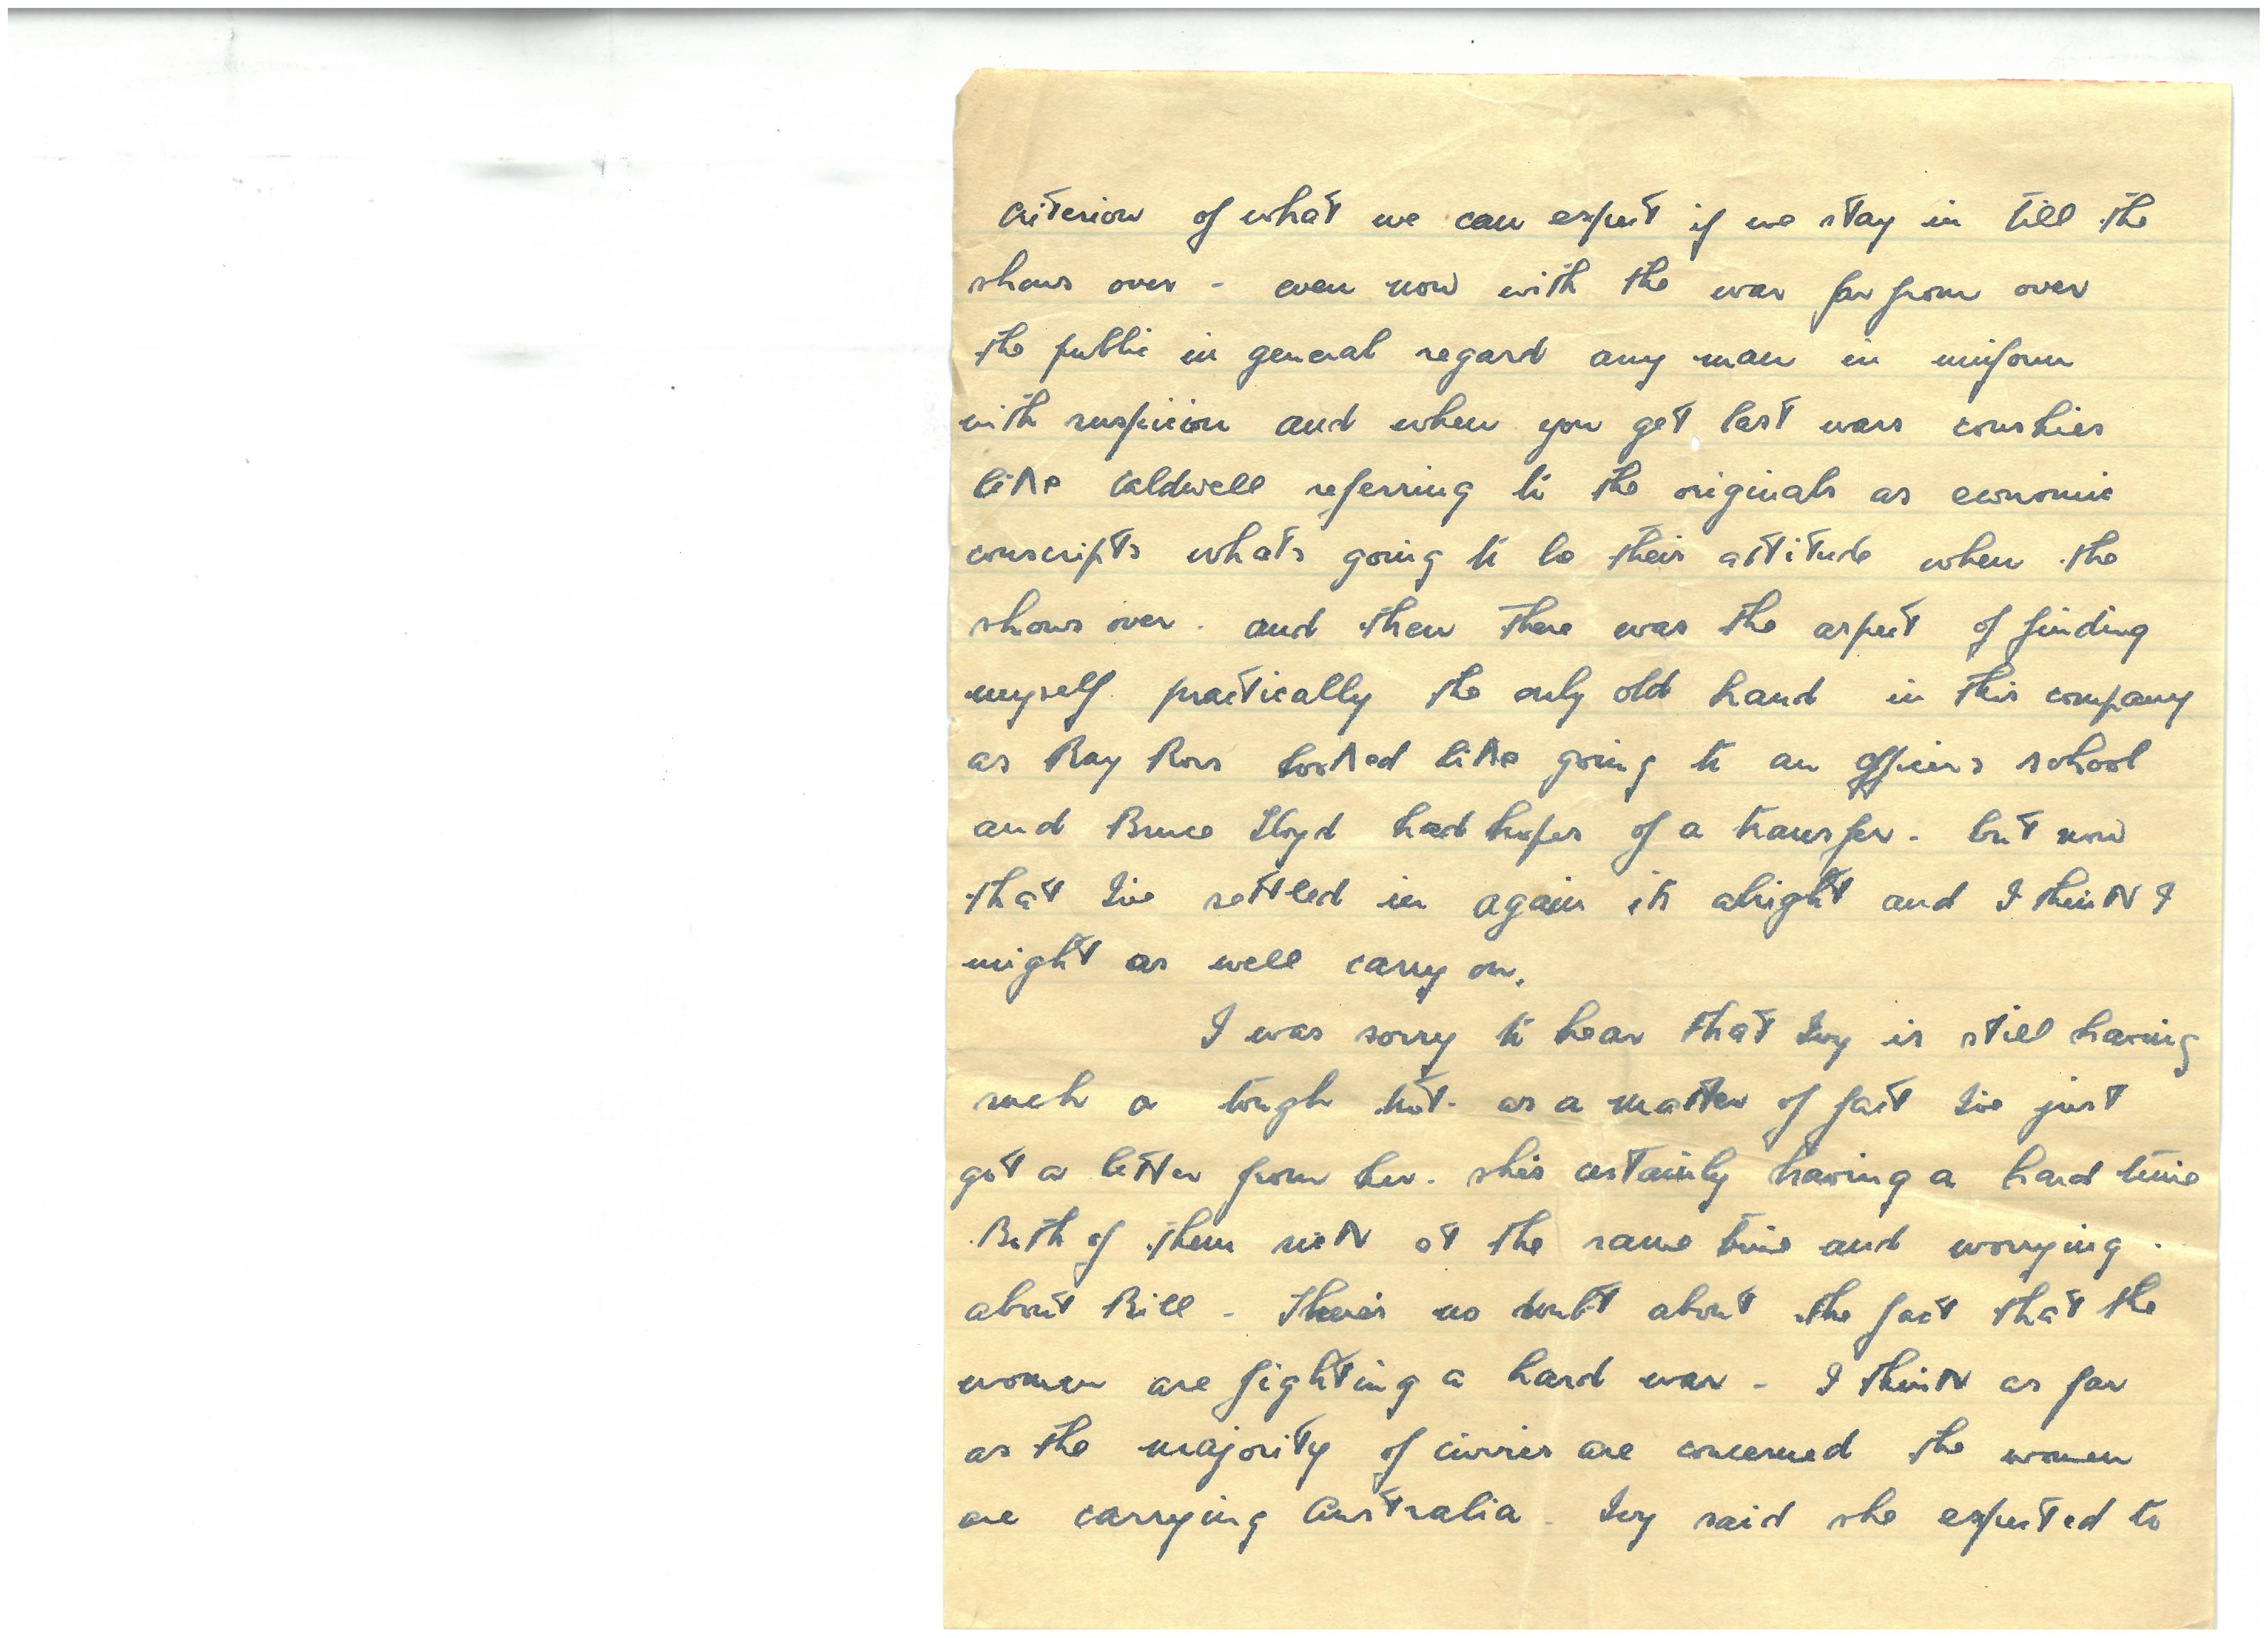 criterion of what we can expect if we stay in till the
shows over - even now with the war far from over
the public in general regard any man in uniform
with suspicion and when you get last wars conshies
like Caldwell referring to the originals as economic
conscripts whats going to be their attitude when the
shows over. and then there was the aspect of finding
myself practically the only old hand in this company
as Ray Ross looked like going to an officers school
and Bruce Lloyd had hopes of a transfer - but now
that I've settled in again its alright and I think I
might as well carry on.
I was sorry to hear that Ivy is still having
such a tough trot - as a matter of fact I've just
got a letter from her - she's certainly having a hard time
Both of them sick at the same time and worrying
about Bill - There's no doubt about the fact that the
women are fighting a hard war - I think as far
as the majority of civvies are concerned the women
are carrying Australia - Ivy said she expected to